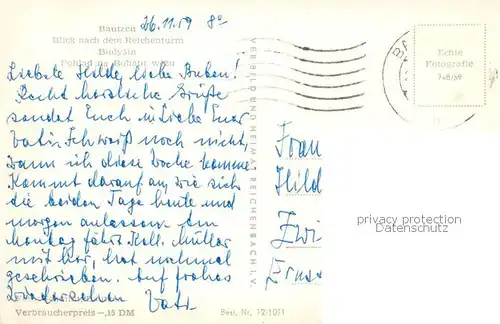 Bautzen
Blick nach dem Reichenturm
Budyšin
Pohlad na Bohatu wěžu
26.11.59 8°
Liebste Hilde, liebe Buben!
Recht herzliche Grüße
sendet Euch in Liebe Euer
Vati. Ich weiß noch nicht,
wann ich diese Woche komme.
Kommt darauf an, wie sich
die beiden Tage heute und
morgen anlassen. Am
Montag fährt Koll. Müller
mit hier, hat nochmal
geschrieben. Auf frohes
Wiedersehen Vati
Verbraucherpreis -,15 DM
Best. Nr. 12/1011
VERB BILD UND HEIMAT REICHENBACH I. V.
Echte
Fotografie
748/59
BA
Frau
Hild
Zwi
Ernst
privacy protection
Datenschutz